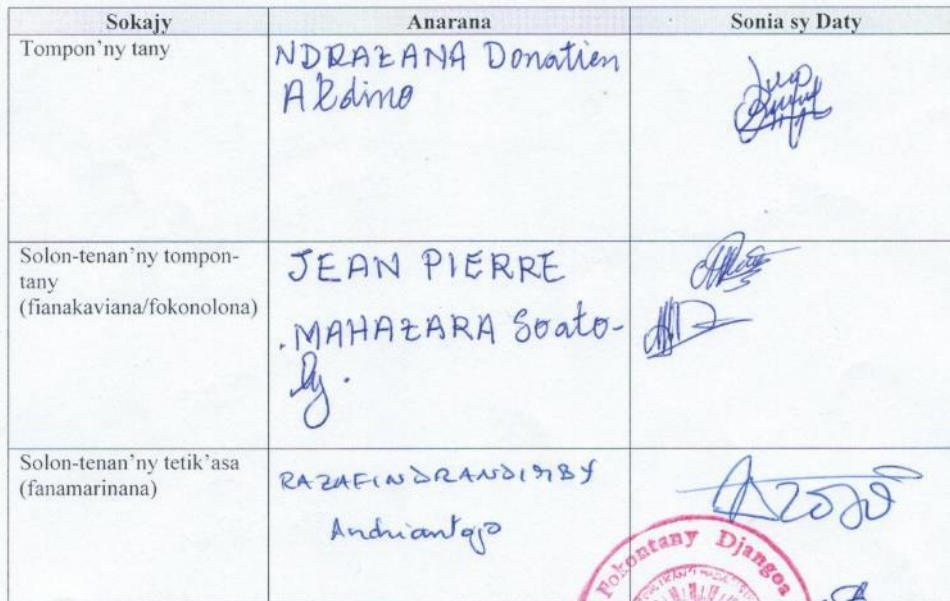 Sokajy Anarana Sonia sy Daty
Tompon'ny tany
NDRAZANA Donatien
Aldimo
Solon-tenan'ny tompon-
tany
(fianakaviana/fokonolona)
JEAN PIERRE
.MAHAZARA Soato-
dy.
Solon-tenan'ny tetik'asa
(fanamarinana)
RAZAFINDRANDIMBY
Andriantojo
Fokontany Djangoa